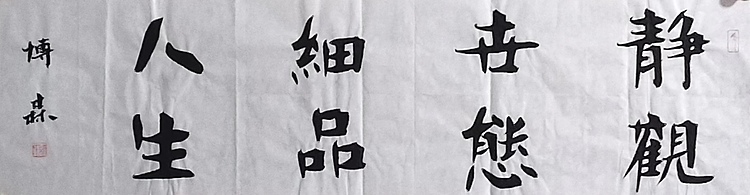 静觀
世態
細品
人生
博森